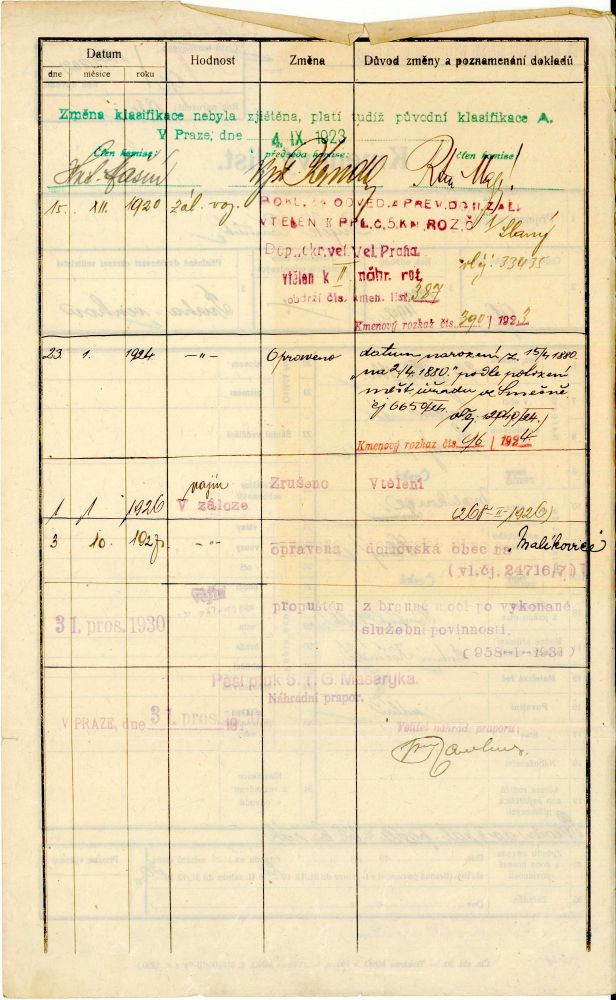 Datum
Hodnost
Změna
Důvod změny a poznamenání dokladů
dne
měsíce
roku
Změna klasifikace nebyla zjištěna, platí tudíž původní klasifikace A.
V Praze, dne 4. IX. 1923
Člen komise:
předseda komise:
člen komise:
15. XII. 1920 zál. voj.
VTĚLEN
Slaný
Dopl. okr. vel. Vel. Praha
vtělen k II. náhr. rot.
obdrží čís. kmen. list. 387
Kmenový rozkaz čís. 390 / 1923
23. 1. 1924 –"– Opraveno datum narození z 15/4 1880.
„na 2/4. 1880." podle potvrzení
měst. úřadu ve Smečně
čj 6650/24.
Kmenový rozkaz čís. 96 / 1924
1 1 1926 vojín V záloze Zrušeno Vtělení
(268-II-1926)
3 10. 1927 –"– opravena domovská obec na „Malíkovice"
(vl. čj. 24716/7)
31. pros. 1930 vojín v záloze propuštěn z branné moci po vykonané
služební povinnosti.
(958-I-1931)
Pěší pluk 5. T. G. Masaryka.
Náhradní prapor.
V PRAZE, dne 31. pros. 19
Velitel náhrad. praporu: